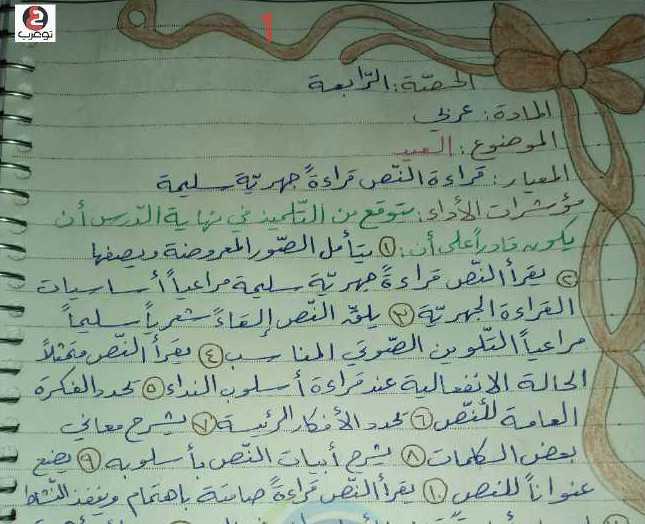 توعرب
1
الحصّة: الرّابعة
المادة: عربي
الموضوع: العيد
المعيار: قراءة النّص قراءةً جهريّة سليمة
مؤشرات الأداء: يتوقع من التّلميذ في نهاية الدّرس أن
يكون قادراً على أن: ١ يتأمل الصّور المعروضة ويصفها
٢ يقرأ النّص قراءةً جهريّة سليمة مراعياً أساسيات
القراءة الجهريّة ٣ يلقي النّص إلقاءً شعرياً سليماً
مراعياً التّلوين الصّوتي المناسب ٤ يقرأ النّص متمثلاً
الحالة الانفعالية عند قراءة أسلوب النداء ٥ يحدد الفكرة
العامة للنّص ٦ يحدد الأفكار الرئيسة ٧ يشرح معاني
بعض الكلمات ٨ يشرح أبيات النّص بأسلوبه ٩ يضع
عنواناً للنص ١٠ يقرأ النّص قراءةً صامتة باهتمام وينفذ النّشاط